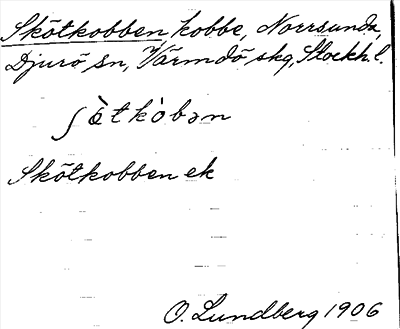 Skötkobben kobbe, Norrsunda,
Djurö sn, Värmdö skg, Stockh. l.
ʃö̀tkòbən
Skötkobben ek
O. Lundberg 1906